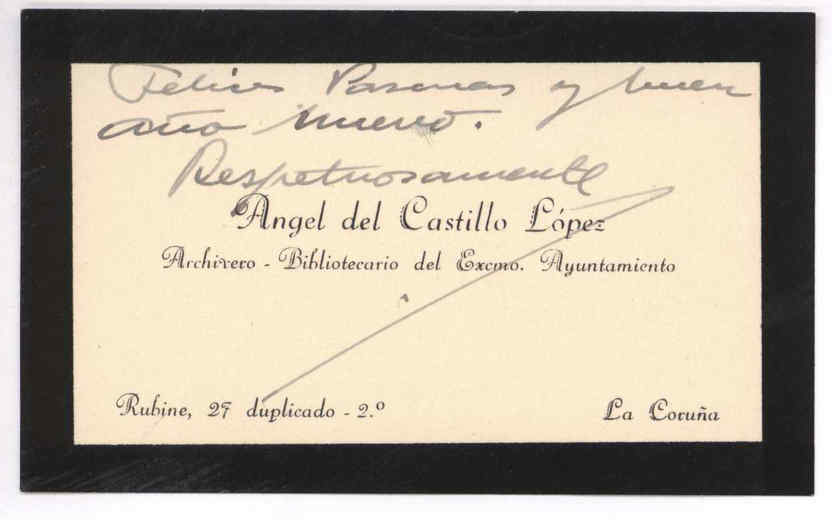 Felices Pascuas y buen
año nuevo.
Respetuosamente
Angel del Castillo López
Archivero - Bibliotecario del Excmo. Ayuntamiento
Rubine, 27 duplicado - 2.º
La Coruña